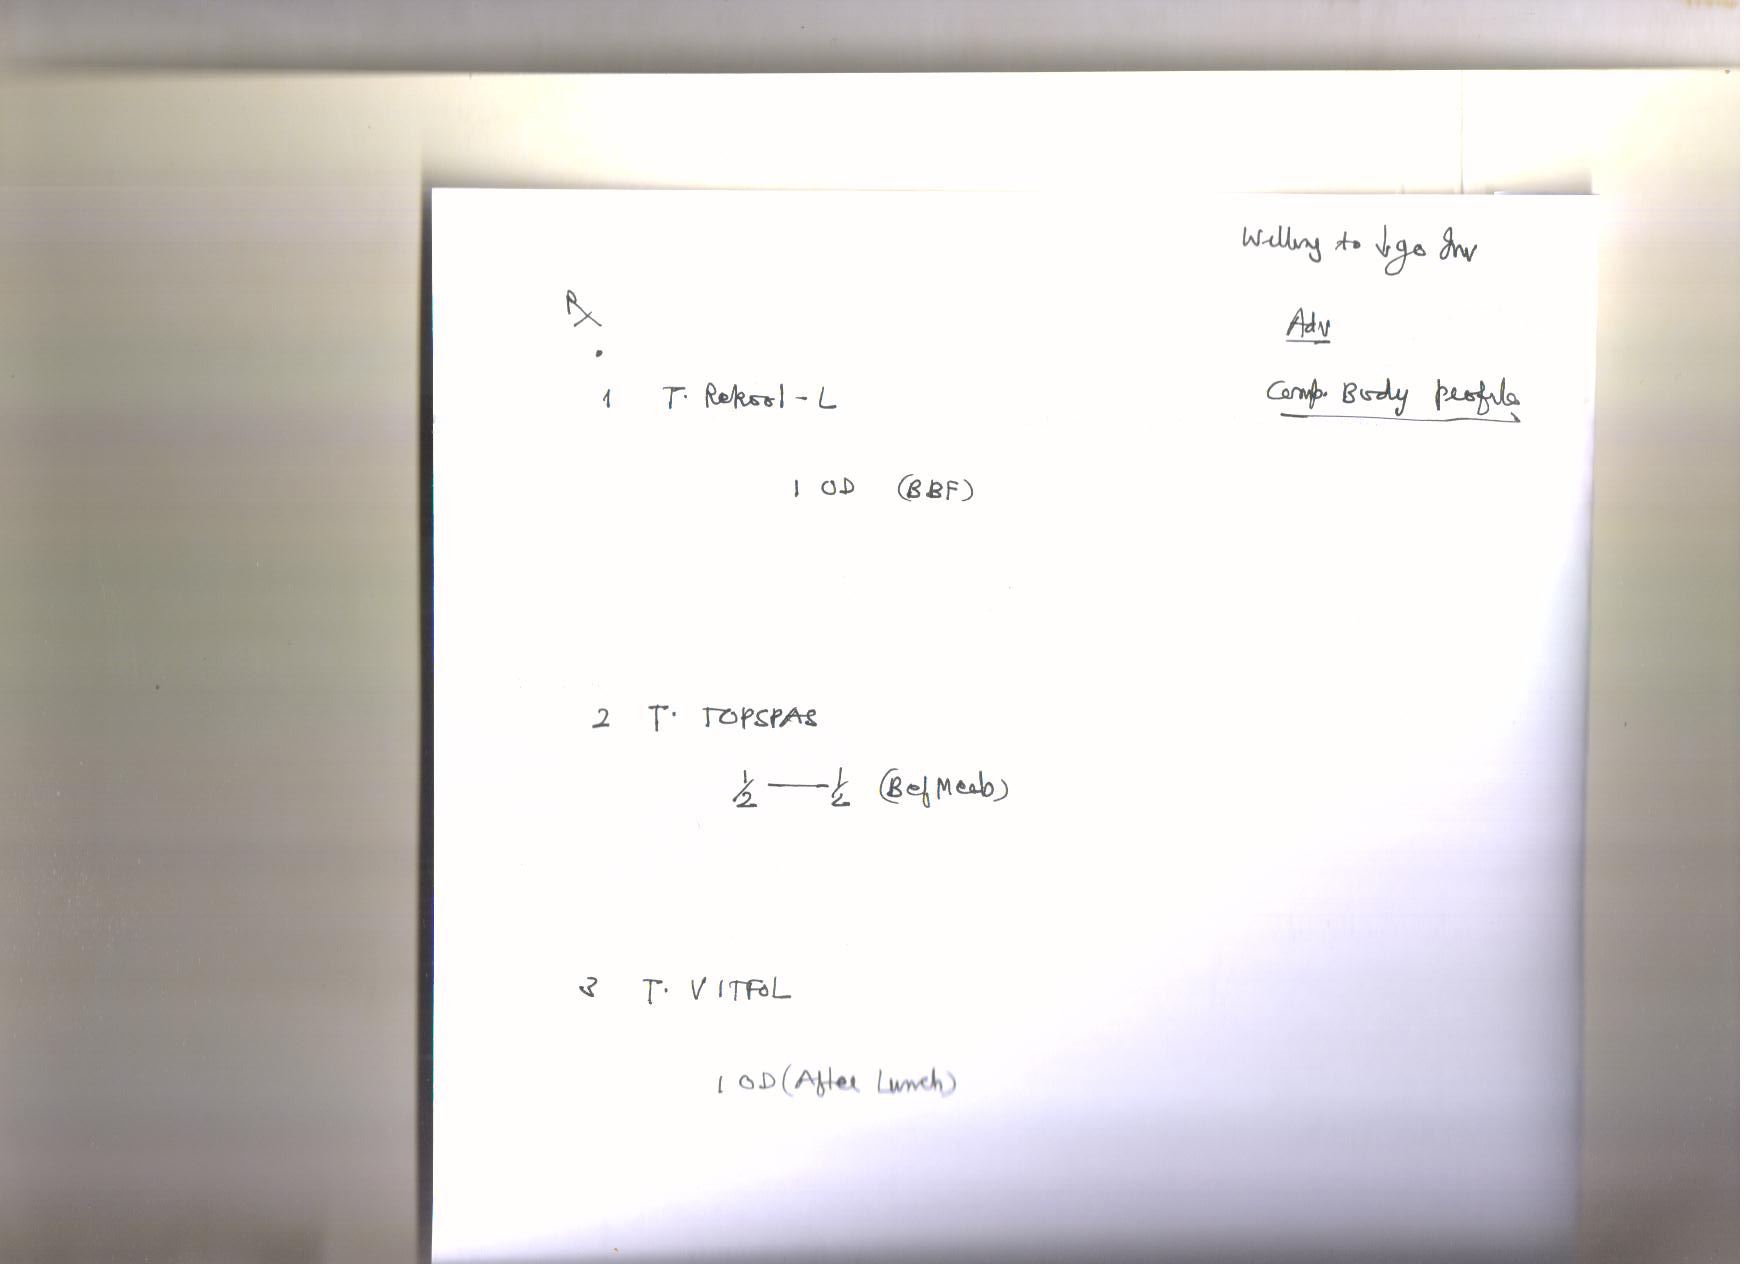 Willing to ↓go Inv
Rx
Adv
1 T. Rekool-L
Comp. Body profile
1 OD (BBF)
2 T. TOPSPAS
1/2 — 1/2 (Bef Meals)
3 T. VITFOL
1 OD (After Lunch)